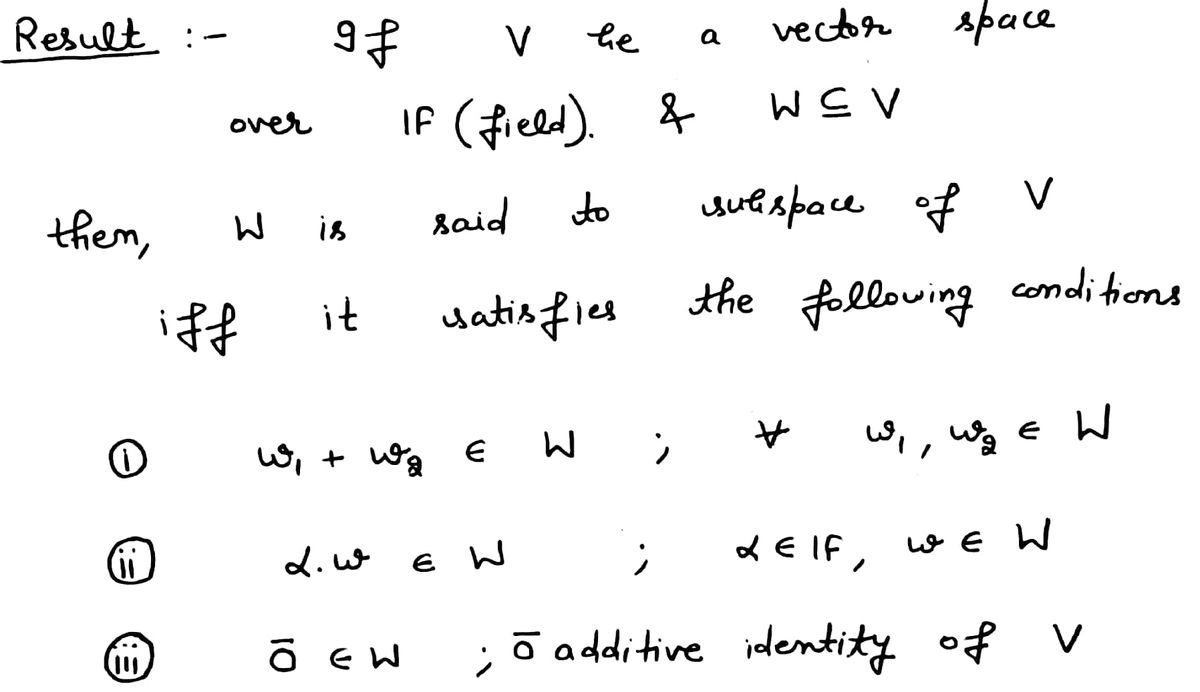 Result :- If V be a vector space
over IF (field). & W ⊆ V
then, W is said to subspace of V
iff it satisfies the following conditions
(i) w₁ + w₂ ∈ W ; ∀ w₁, w₂ ∈ W
(ii) α.w ∈ W ; α ∈ IF, w ∈ W
(iii) ō ∈ W ; ō additive identity of V